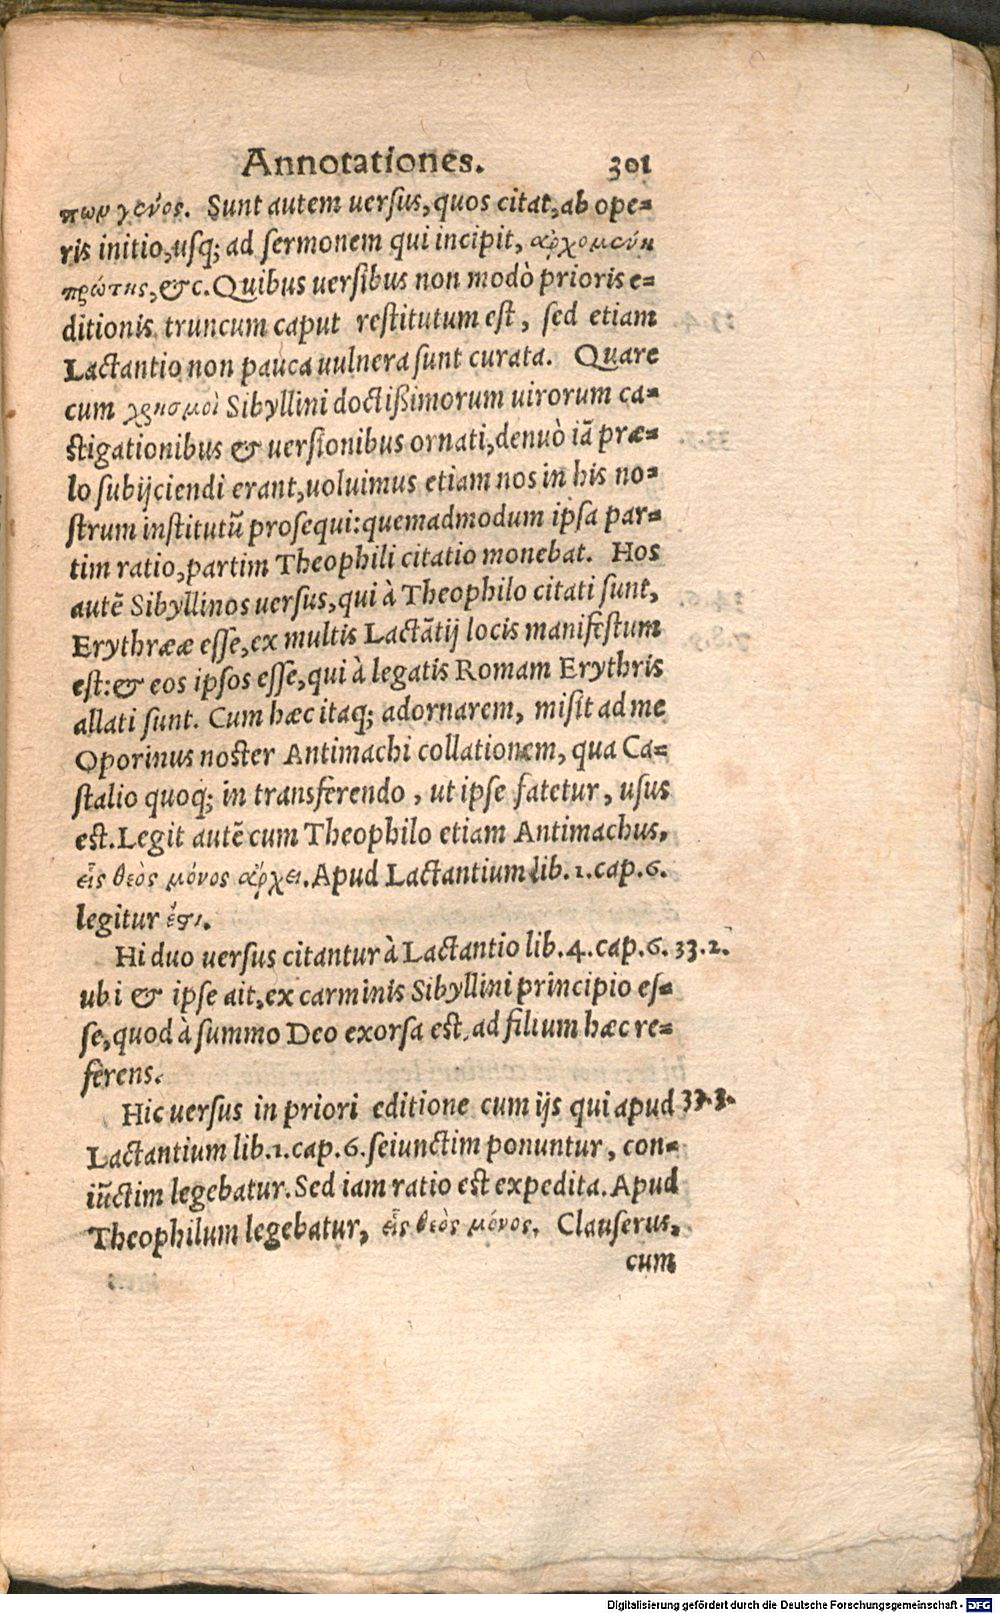 Annotationes. 301
πων γένος. Sunt autem uersus, quos citat, ab ope=
ris initio, usq; ad sermonem qui incipit, ἀρχομένη
πρώτης, &c. Quibus uersibus non modò prioris e=
ditionis truncum caput restitutum est, sed etiam
Lactantio non pauca uulnera sunt curata. Quare
cum χρησμοὶ Sibyllini doctißimorum uirorum ca=
stigationibus & uersionibus ornati, denuò iã præ=
lo subijciendi erant, uoluimus etiam nos in his no=
strum institutũ prosequi: quemadmodum ipsa par=
tim ratio, partim Theophili citatio monebat. Hos
autẽ Sibyllinos uersus, qui à Theophilo citati sunt,
Erythrææ esse, ex multis Lactãtij locis manifestum
est: & eos ipsos esse, qui à legatis Romam Erythris
allati sunt. Cum hæc itaq; adornarem, misit ad me
Oporinus noster Antimachi collationem, qua Ca=
stalio quoq; in transferendo, ut ipse fatetur, usus
est. Legit autẽ cum Theophilo etiam Antimachus,
εἷς θεὸς μόνος ἄρχει. Apud Lactantium lib. 1. cap. 6.
legitur ἐστι.
Hi duo uersus citantur à Lactantio lib. 4. cap. 6. 33.2.
ubi & ipse ait, ex carminis Sibyllini principio es=
se, quod à summo Deo exorsa est, ad filium hæc re=
ferens.
Hic uersus in priori editione cum ijs qui apud 33.3.
Lactantium lib. 1. cap. 6. seiunctim ponuntur, con=
iũctim legebatur. Sed iam ratio est expedita. Apud
Theophilum legebatur, εἷς θεὸς μόνος. Clauserus,
cum
Digitalisierung gefördert durch die Deutsche Forschungsgemeinschaft - DFG